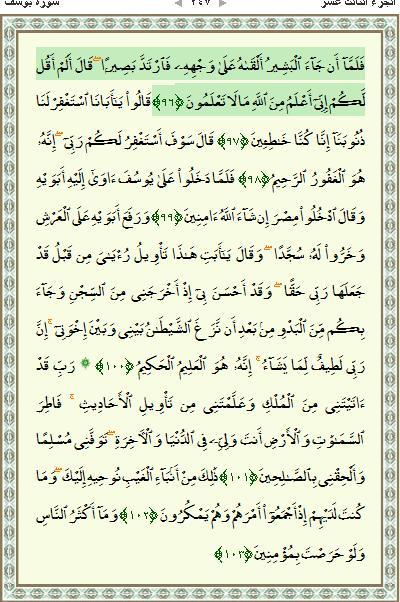 الجزء الثالث عشر ٢٤٧ سورة يوسف
فَلَمَّآ أَن جَآءَ ٱلْبَشِيرُ أَلْقَىٰهُ عَلَىٰ وَجْهِهِۦ فَٱرْتَدَّ بَصِيرًا ۖ قَالَ أَلَمْ أَقُل
لَّكُمْ إِنِّىٓ أَعْلَمُ مِنَ ٱللَّهِ مَا لَا تَعْلَمُونَ ﴿٩٦﴾ قَالُوا۟ يَٰٓأَبَانَا ٱسْتَغْفِرْ لَنَا
ذُنُوبَنَآ إِنَّا كُنَّا خَٰطِـِٔينَ ﴿٩٧﴾ قَالَ سَوْفَ أَسْتَغْفِرُ لَكُمْ رَبِّىٓ ۖ إِنَّهُۥ
هُوَ ٱلْغَفُورُ ٱلرَّحِيمُ ﴿٩٨﴾ فَلَمَّا دَخَلُوا۟ عَلَىٰ يُوسُفَ ءَاوَىٰٓ إِلَيْهِ أَبَوَيْهِ
وَقَالَ ٱدْخُلُوا۟ مِصْرَ إِن شَآءَ ٱللَّهُ ءَامِنِينَ ﴿٩٩﴾ وَرَفَعَ أَبَوَيْهِ عَلَى ٱلْعَرْشِ
وَخَرُّوا۟ لَهُۥ سُجَّدًا ۖ وَقَالَ يَٰٓأَبَتِ هَٰذَا تَأْوِيلُ رُءْيَٰىَ مِن قَبْلُ قَدْ
جَعَلَهَا رَبِّى حَقًّا ۖ وَقَدْ أَحْسَنَ بِىٓ إِذْ أَخْرَجَنِى مِنَ ٱلسِّجْنِ وَجَآءَ
بِكُم مِّنَ ٱلْبَدْوِ مِنۢ بَعْدِ أَن نَّزَغَ ٱلشَّيْطَٰنُ بَيْنِى وَبَيْنَ إِخْوَتِىٓ ۚ إِنَّ
رَبِّى لَطِيفٌ لِّمَا يَشَآءُ ۚ إِنَّهُۥ هُوَ ٱلْعَلِيمُ ٱلْحَكِيمُ ﴿١٠٠﴾ ۞ رَبِّ قَدْ
ءَاتَيْتَنِى مِنَ ٱلْمُلْكِ وَعَلَّمْتَنِى مِن تَأْوِيلِ ٱلْأَحَادِيثِ ۚ فَاطِرَ
ٱلسَّمَٰوَٰتِ وَٱلْأَرْضِ أَنتَ وَلِىِّۦ فِى ٱلدُّنْيَا وَٱلْءَاخِرَةِ ۖ تَوَفَّنِى مُسْلِمًا
وَأَلْحِقْنِى بِٱلصَّٰلِحِينَ ﴿١٠١﴾ ذَٰلِكَ مِنْ أَنۢبَآءِ ٱلْغَيْبِ نُوحِيهِ إِلَيْكَ ۖ وَمَا
كُنتَ لَدَيْهِمْ إِذْ أَجْمَعُوٓا۟ أَمْرَهُمْ وَهُمْ يَمْكُرُونَ ﴿١٠٢﴾ وَمَآ أَكْثَرُ ٱلنَّاسِ
وَلَوْ حَرَصْتَ بِمُؤْمِنِينَ ﴿١٠٣﴾